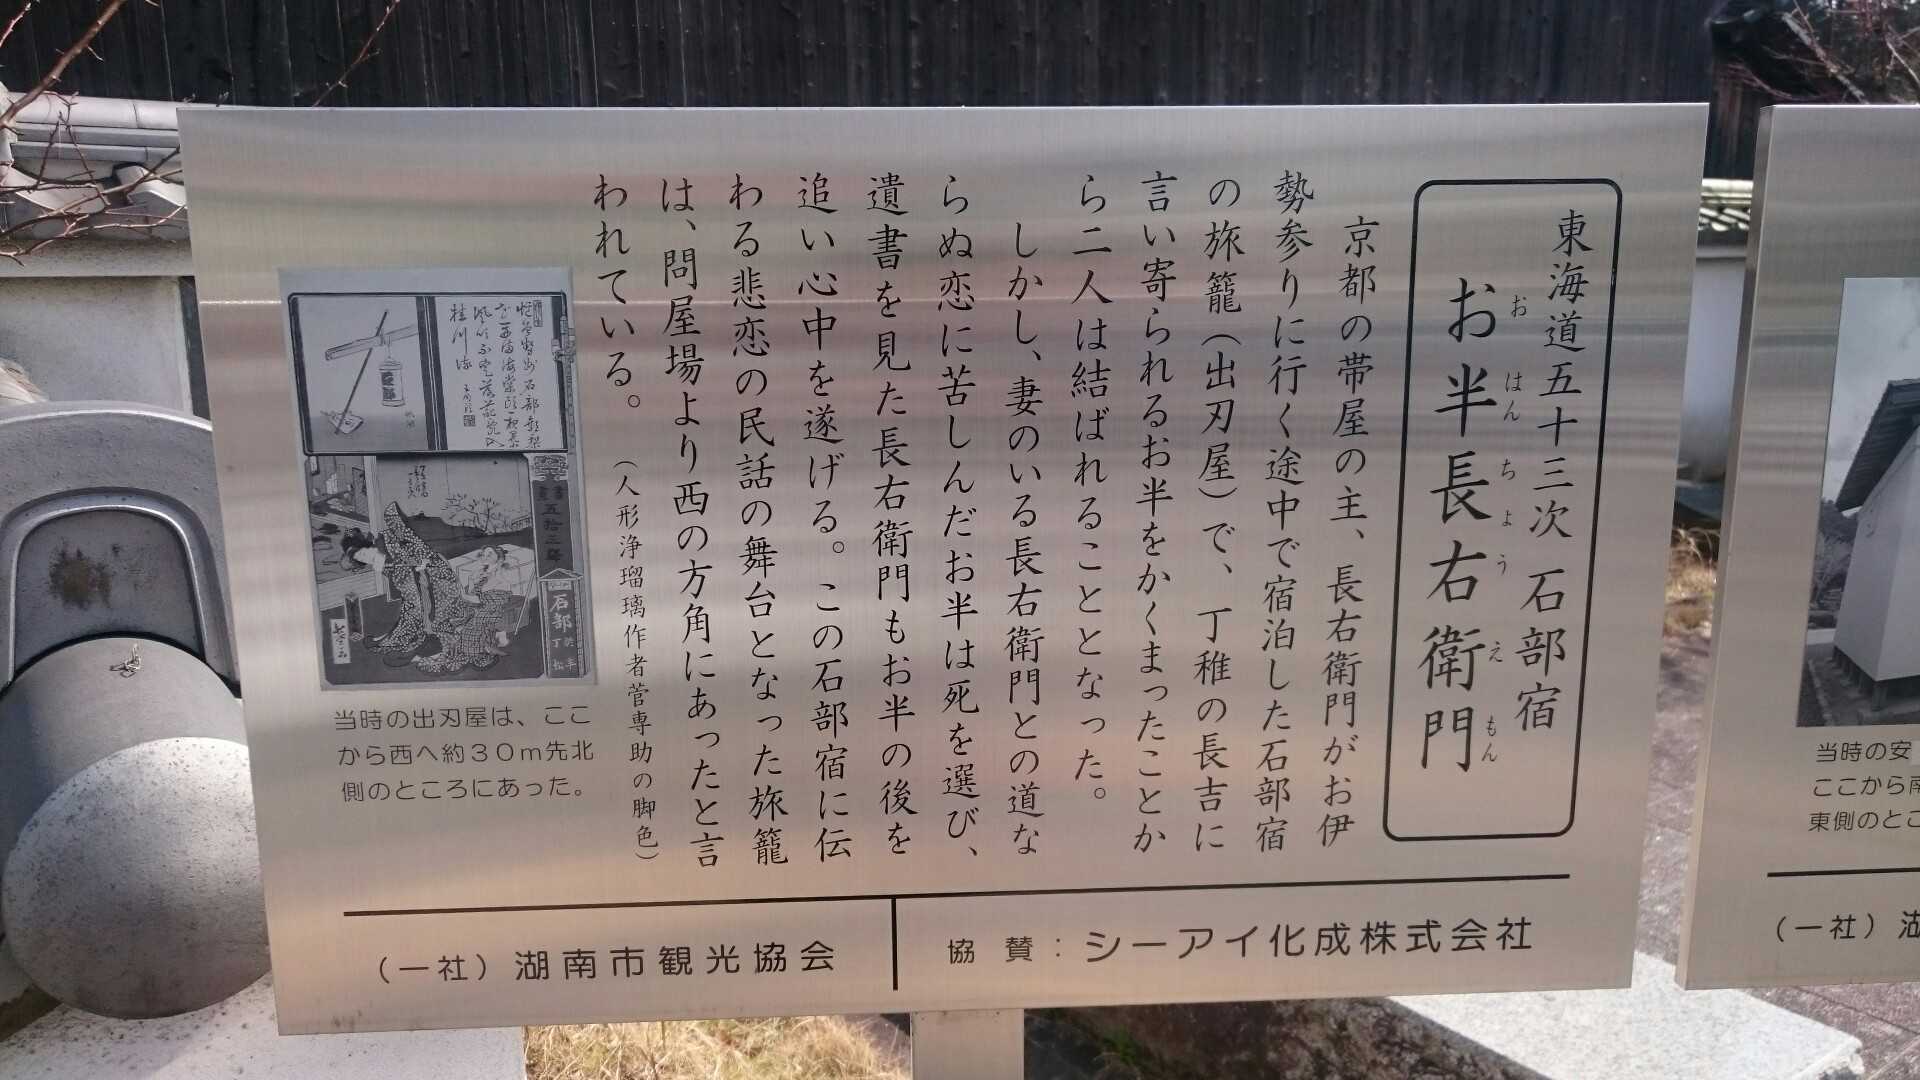 東海道五十三次 石部宿
お半長右衛門
おはんちょうえもん
京都の帯屋の主、長右衛門がお伊
勢参りに行く途中で宿泊した石部宿
の旅籠（出刃屋）で、丁稚の長吉に
言い寄られるお半をかくまったことか
ら二人は結ばれることとなった。
しかし、妻のいる長右衛門との道な
らぬ恋に苦しんだお半は死を選び、
遺書を見た長右衛門もお半の後を
追い心中を遂げる。この石部宿に伝
わる悲恋の民話の舞台となった旅籠
は、問屋場より西の方角にあったと言
われている。
（人形浄瑠璃作者菅専助の脚色）
五拾三駅
石部
当時の出刃屋は、ここ
から西へ約30m先北
側のところにあった。
（一社）湖南市観光協会
協賛：シーアイ化成株式会社
当時の安
ここから南
東側のとこ
（一社）湖